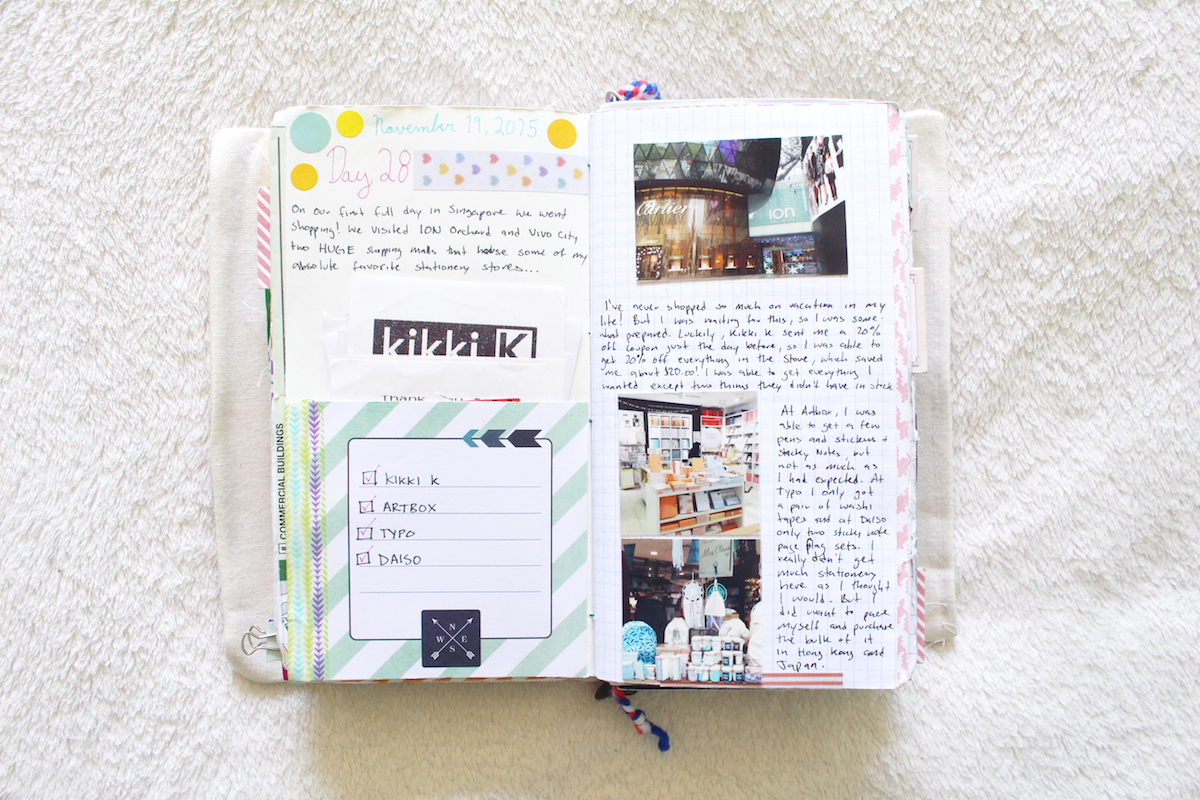 November 19, 2015
Day 28
On our first full day in Singapore we went
shopping! We visited ION Orchard and Vivo City
two HUGE shopping malls that house some of my
absolute favorite stationery stores...
kikki K
Thank
COMMERCIAL BUILDINGS
KIKKI K
ARTBOX
TYPO
DAISO
N
W E
S
Cartier
ION
I've never shopped so much on vacation in my
life! But I was waiting for this, so I was some-
what prepared. Luckily, Kikki K sent me a 20%
off coupon just the day before, so I was able to
get 20% off everything in the store, which saved
me about $20.00! I was able to get everything I
wanted except two things they didn't have in stock.
At Artbox, I was
able to get a few
pens and stickers &
Sticky Notes, but
not as much as
I had expected. At
Typo I only got
a pair of washi
tapes and at DAISO
only two sticky note
page flag sets. I
really didn't get
much stationery
here as I thought
I would. But I
did want to pace
myself and purchase
the bulk of it
in Hong Kong and
Japan.